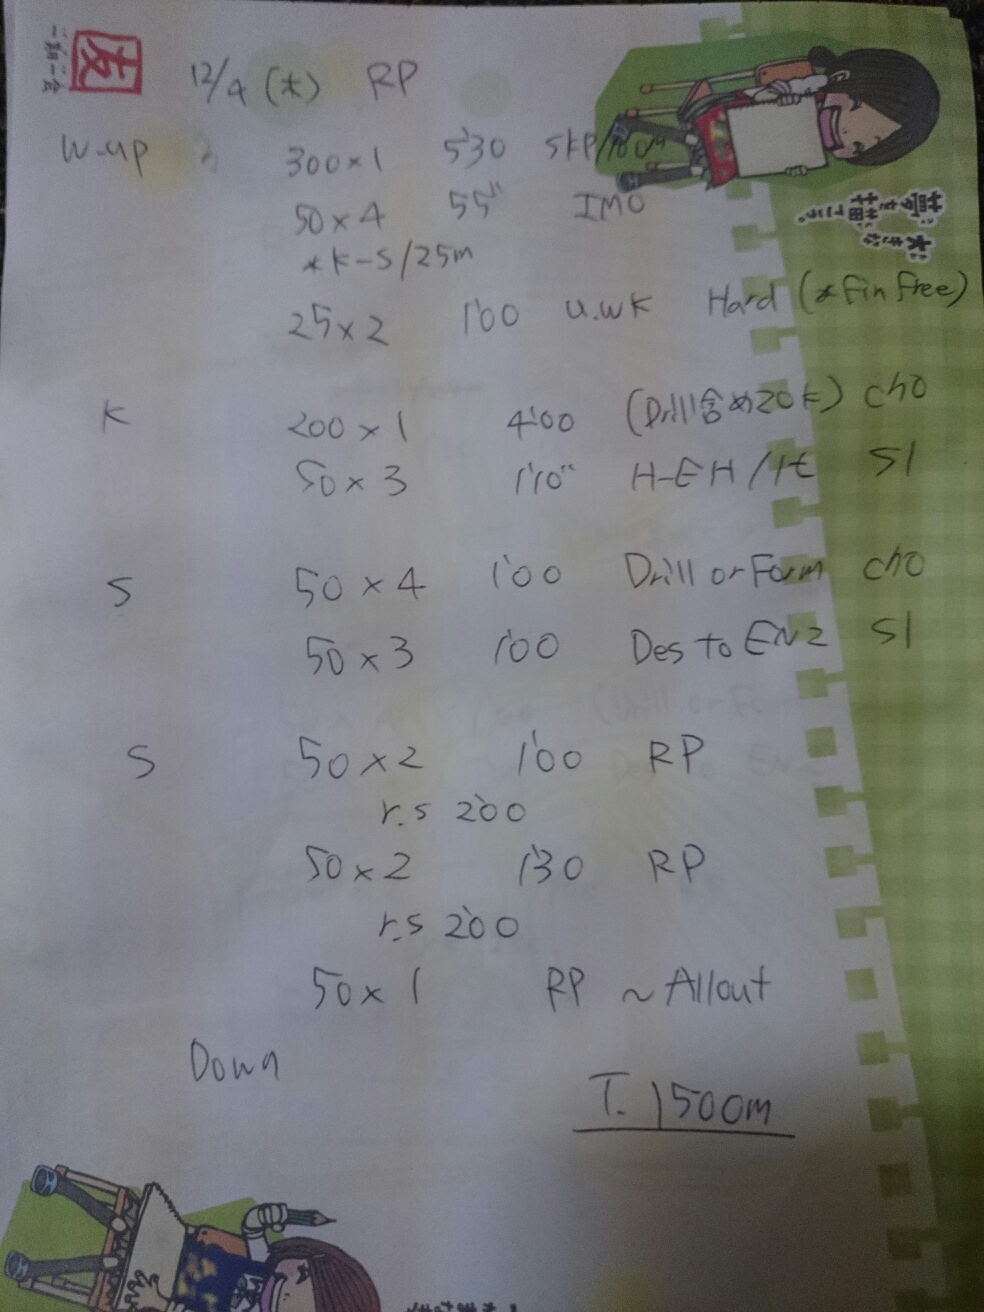 友
一期一会
12/4 (木) RP
W-up 300×1 5'30 SKP/100m
50×4 55" IMO
*K-S/25m
25×2 1'00 u.wk Hard (*fin free)
夢を描こう。
大きな
K 200×1 4'00 (Drill含め20K) cho
50×3 1'10" H-EH/1t S1
S 50×4 1'00 Drill or Form cho
50×3 1'00 Des to EN2 S1
S 50×2 1'00 RP
r.s 2'00
50×2 1'30 RP
r.s 2'00
50×1 RP ~ Allout
Down
T. 1500m